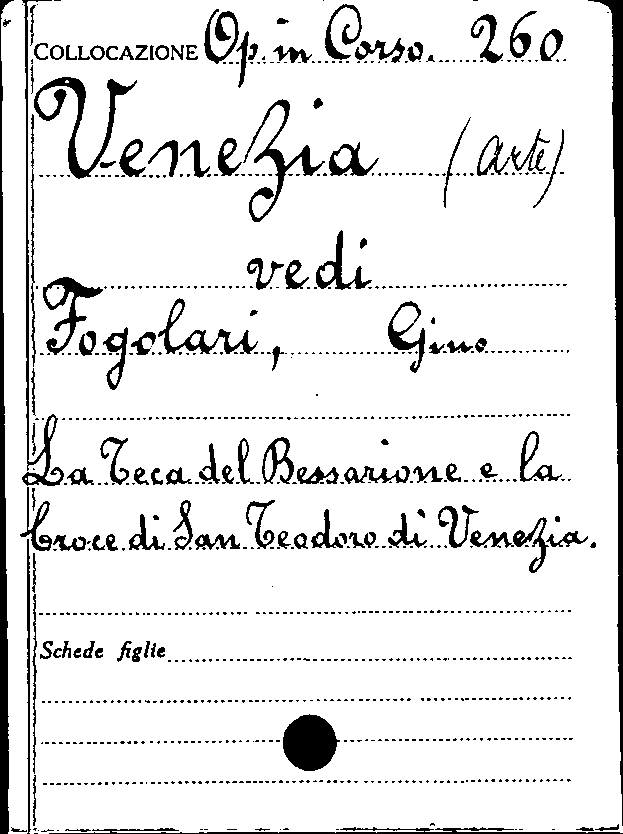 COLLOCAZIONE Op. in Corso. 260
Venezia (arte)
vedi
Fogolari, Gino
La Teca del Bessarione e la
Croce di San Teodoro di Venezia.
Schede figlie